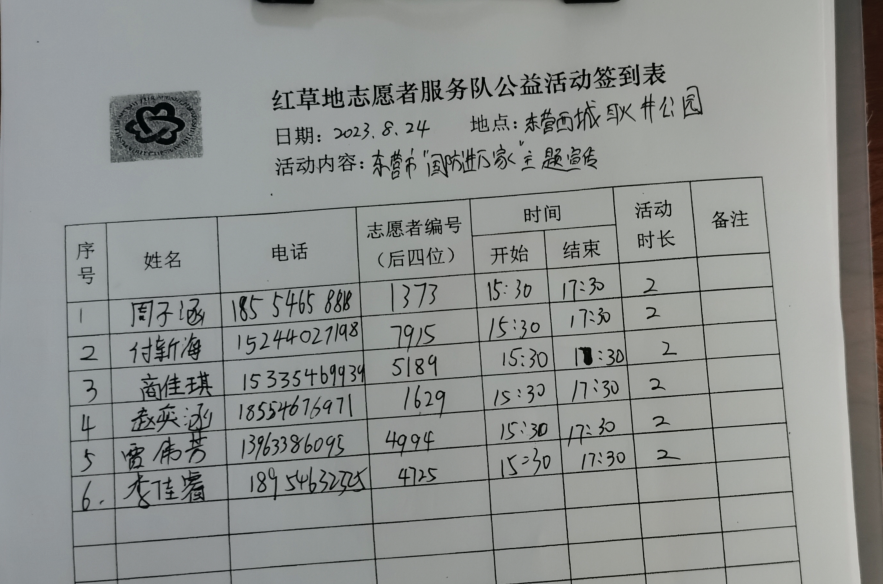 红草地志愿者服务队公益活动签到表
日期：2023.8.24 地点：东营西城耿井公园
活动内容：东营市"国防进万家"主题宣传
序号 姓名 电话 志愿者编号（后四位） 时间 开始 结束 活动时长 备注
1 周子涵 185 5465 8818 1373 15:30 17:30 2
2 付新海 15244027198 7915 15:30 17:30 2
3 商佳琪 15335469939 5189 15:30 17:30 2
4 赵奕涵 18554676971 1629 15:30 17:30 2
5 雷伟芳 13963386095 4994 15:30 17:30 2
6. 李佳睿 189 54632325 4725 15:30 17:30 2